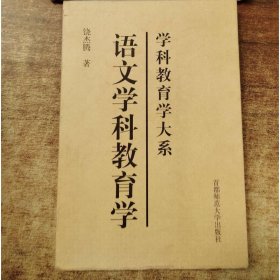 学科教育学大系
语文学科教育学
饶杰腾 著
首都师范大学出版社